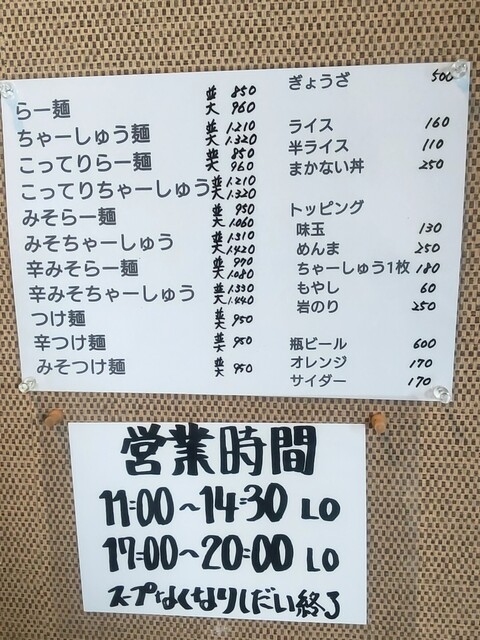 らー麺 並 850
大 960
ちゃーしゅう麺 並 1.210
大 1.320
こってりらー麺 並 850
大 960
こってりちゃーしゅう 並 1.210
大 1.320
みそらー麺 並 950
大 1.060
みそちゃーしゅう 並 1.310
大 1.420
辛みそらー麺 並 970
大 1.080
辛みそちゃーしゅう 並 1.330
大 1.440
つけ麺 並大 950
辛つけ麺 並大 950
みそつけ麺 並大 950
ぎょうざ 500
ライス 160
半ライス 110
まかない丼 250
トッピング
味玉 130
めんま 250
ちゃーしゅう1枚 180
もやし 60
岩のり 250
瓶ビール 600
オレンジ 170
サイダー 170
営業時間
11:00~14:30 LO
17:00~20:00 LO
スープなくなりしだい終了